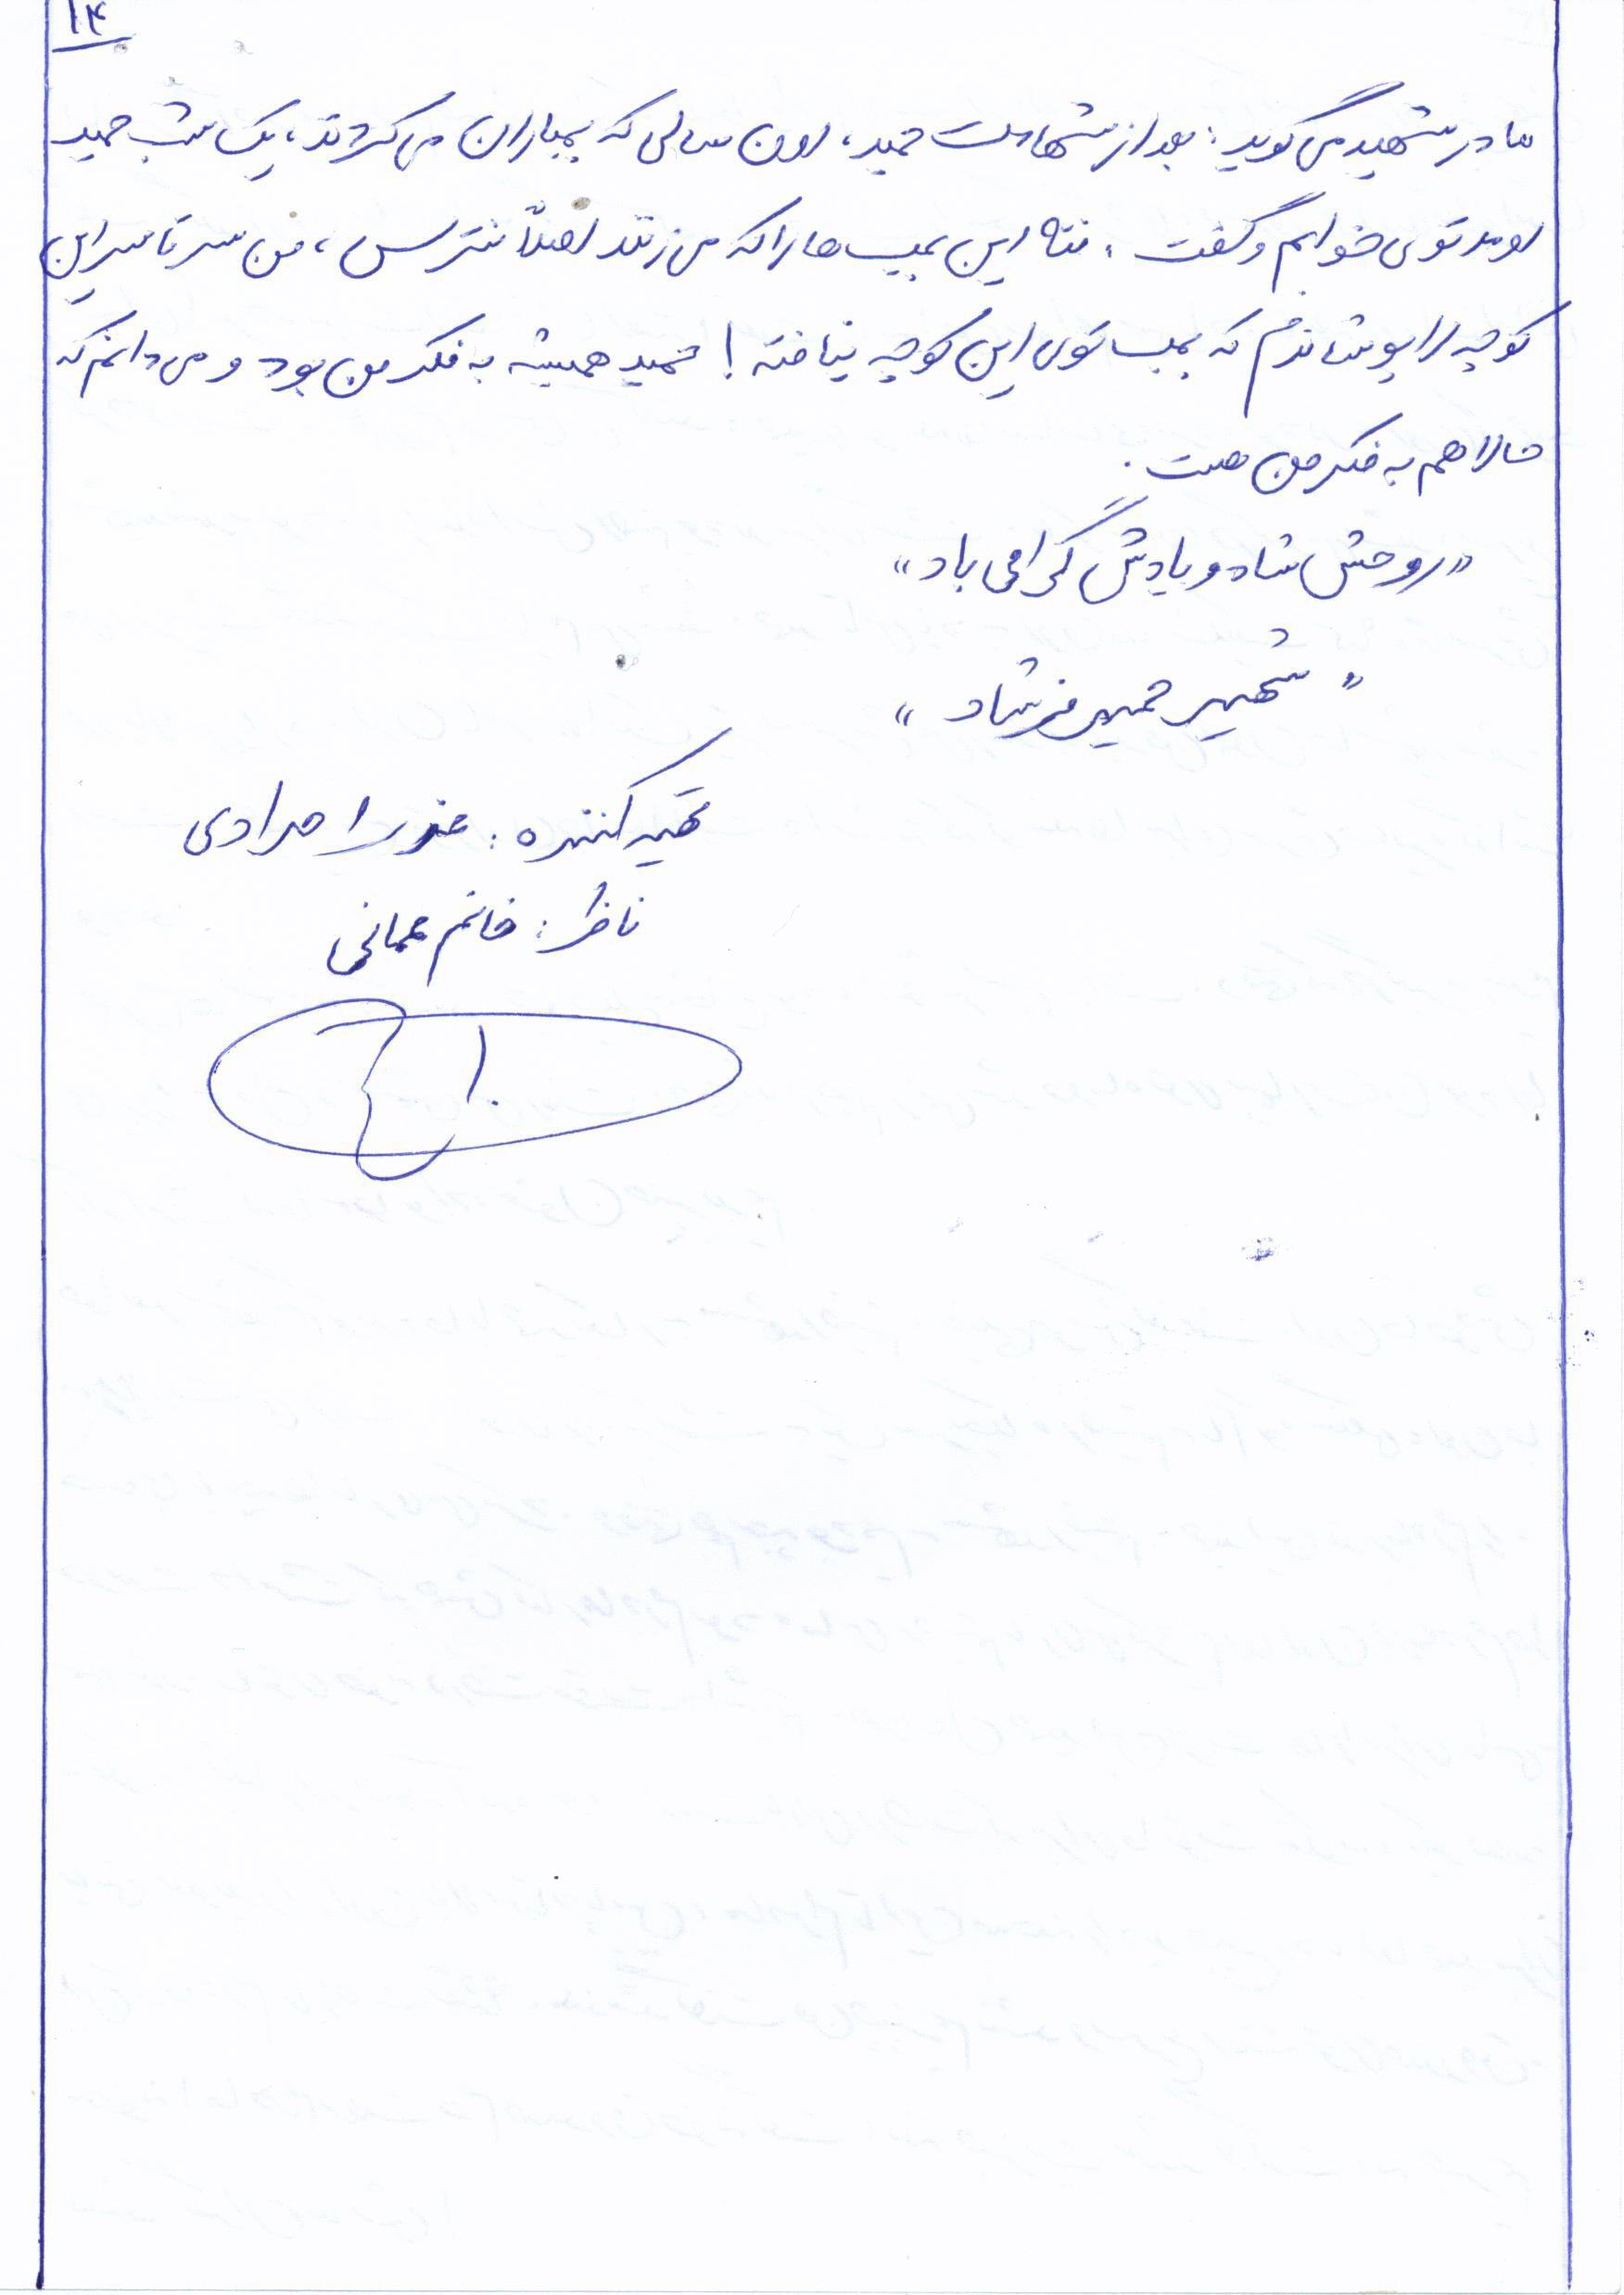 ۱۴
مادر شهید می گوید: بعد از شهادت حمید، اون سالی که بمباران می کردند، یک شب حمید
اومد توی خوابم و گفت: ننه این بمب ها را که می زنند اصلاً نترس، من سر تا سر این
کوچه را پوشاندم که بمب توی این کوچه نیافته! حمید همیشه به فکر من بود و می دانم که
حالا هم به فکر من هست.
«روحش شاد و یادش گرامی باد»
«شهید حمید فرشاد»
تهیه کننده: عذرا مرادی
ناظر: خانم عمانی